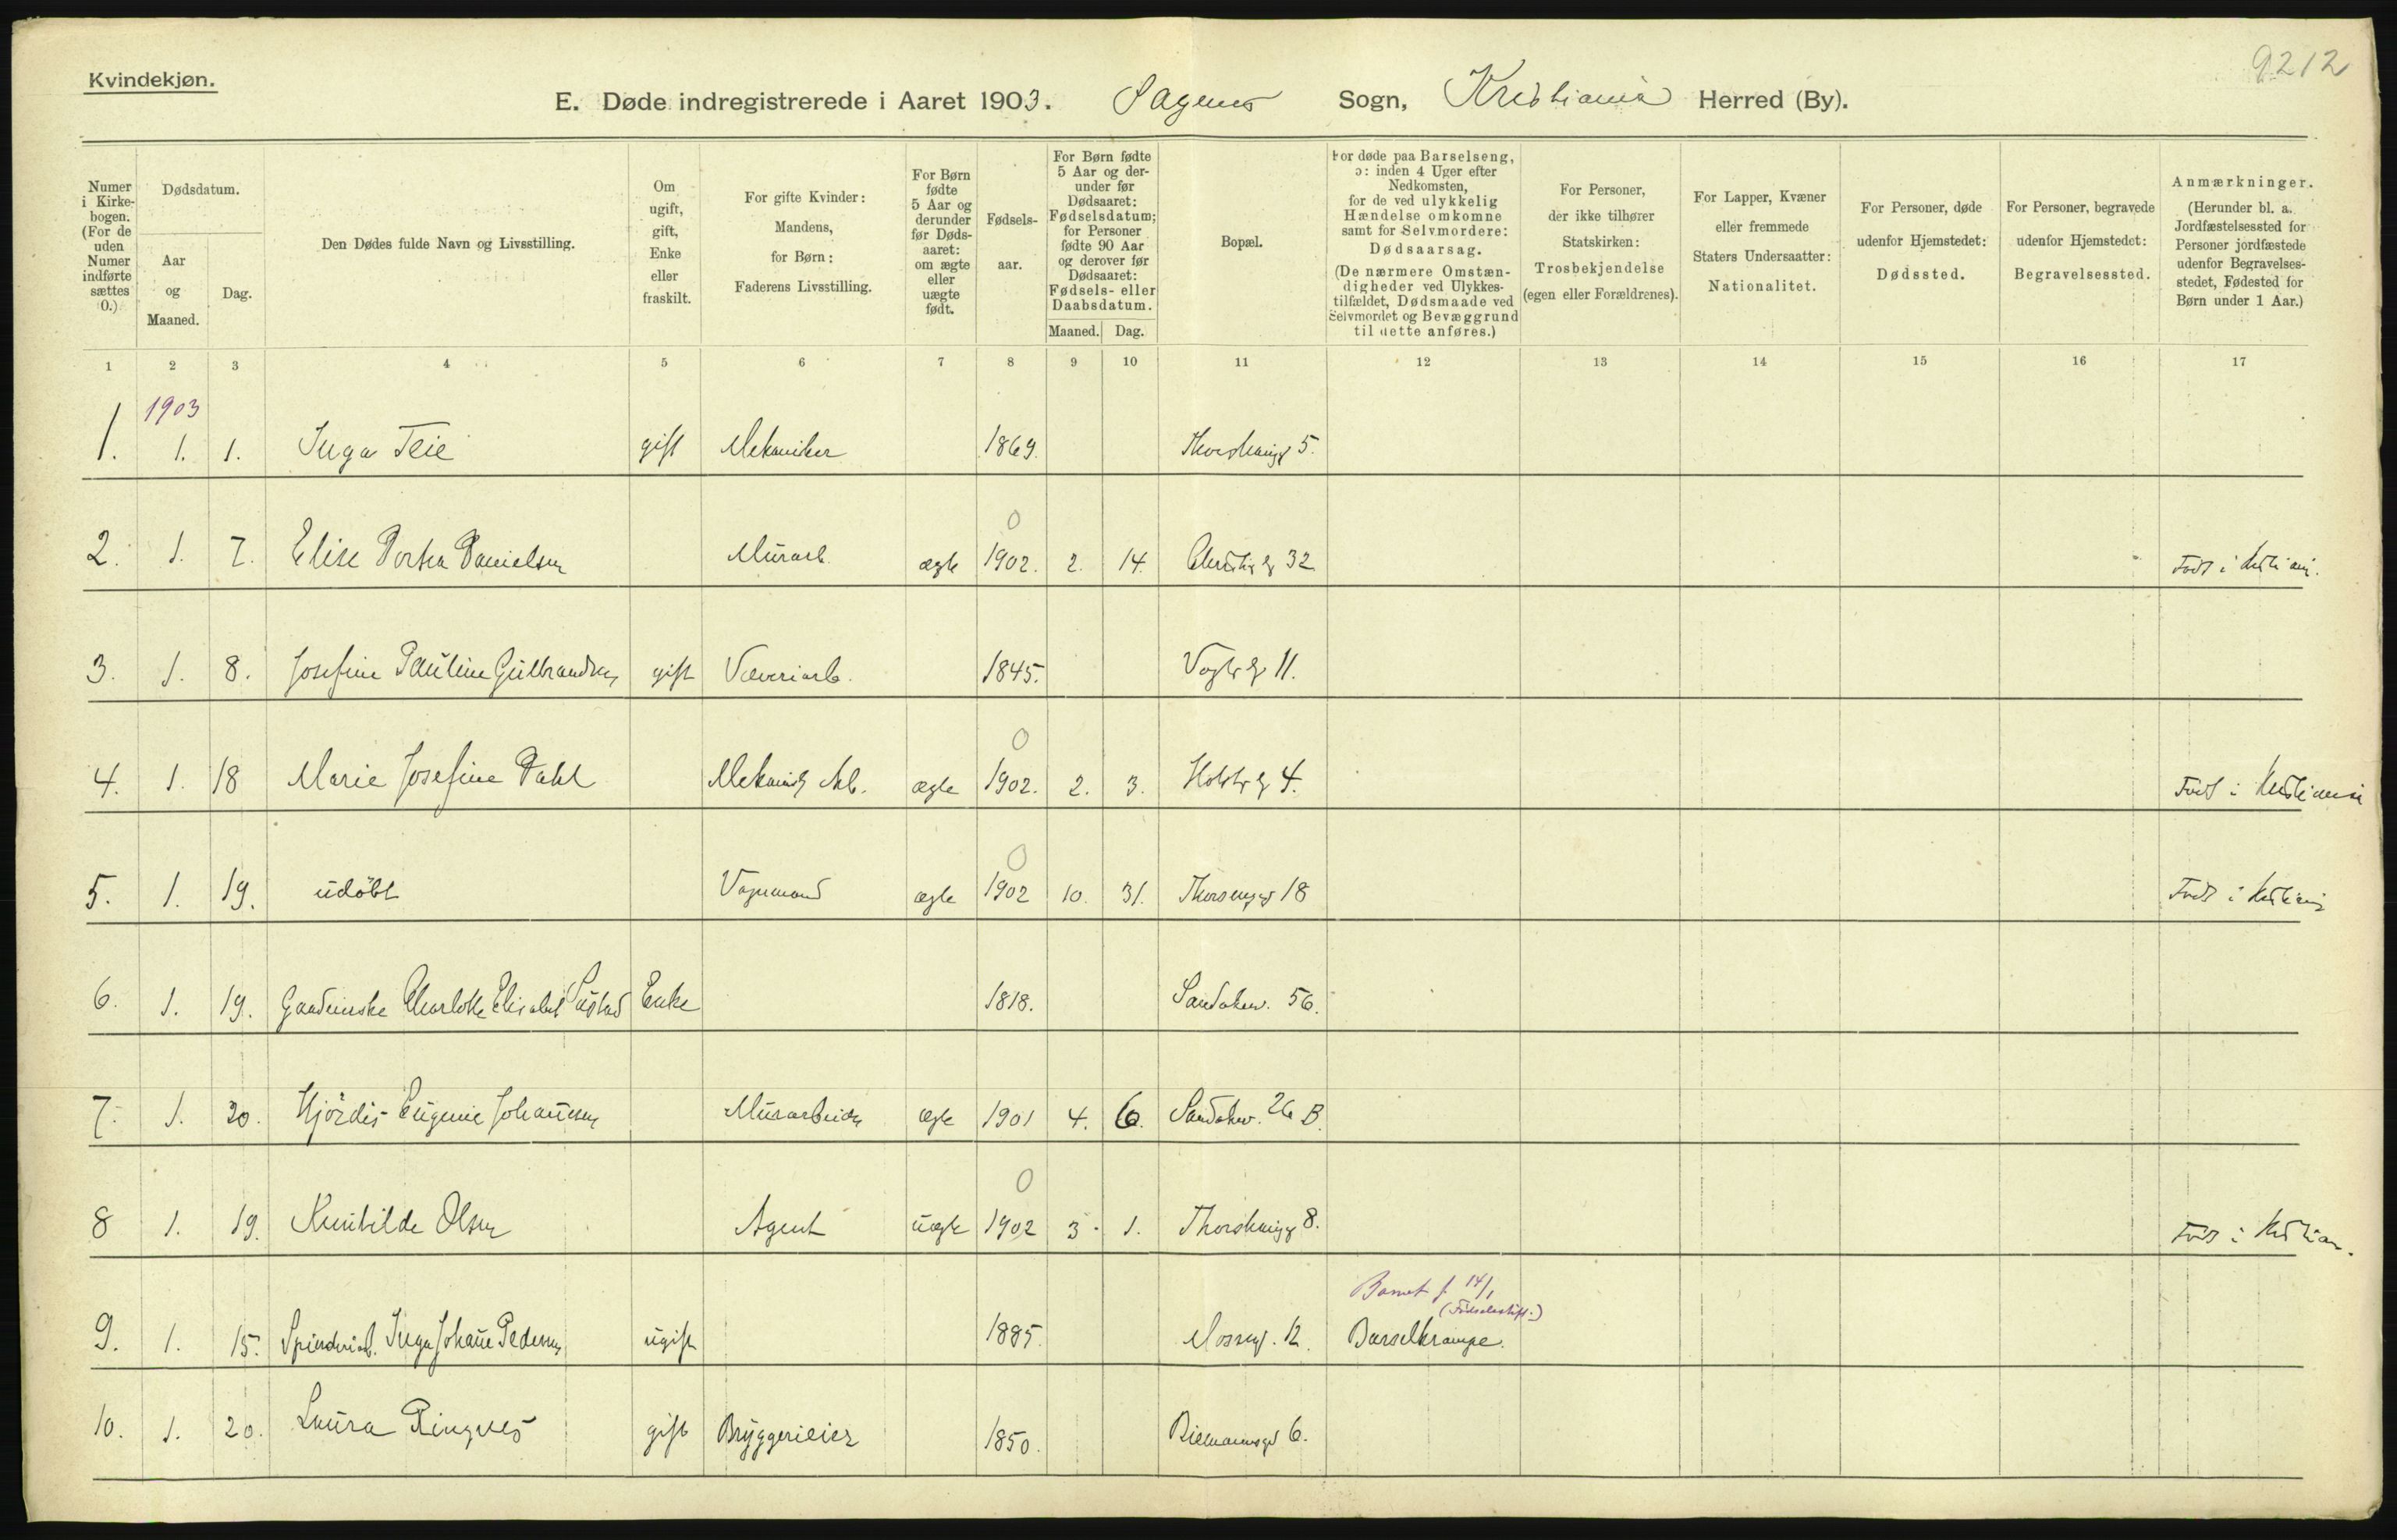 9212
Kvindekjøn.
E. Døde indregistrerede i Aaret 1903. Sagenes Sogn, Kristiania Herred (By).
Numer i Kirkebogen. (For de uden Numer indførte sættes 0.)
Dødsdatum.
Aar og Maaned.
Dag.
Den Dødes fulde Navn og Livsstilling.
Om ugift, gift, Enke eller fraskilt.
For gifte Kvinder: Mandens, for Børn: Faderens Livsstilling.
For Børn fødte 5 Aar og derunder før Dødsaaret: om ægte eller uægte født.
Fødselsaar.
For Børn fødte 5 Aar og derunder før Dødsaaret: Fødselsdatum; for Personer fødte 90 Aar og derover før Dødsaaret: Fødsels- eller Daabsdatum.
Maaned. Dag.
Bopæl.
For døde paa Barselseng, ɔ: inden 4 Uger efter Nedkomsten, for de ved ulykkelig Hændelse omkomne samt for Selvmordere: Dødsaarsag. (De nærmere Omstændigheder ved Ulykkestilfældet, Dødsmaade ved Selvmordet og Bevæggrund til dette anføres.)
For Personer, der ikke tilhører Statskirken: Trosbekjendelse (egen eller Forældrenes).
For Lapper, Kvæner eller fremmede Staters Undersaatter: Nationalitet.
For Personer, døde udenfor Hjemstedet: Dødssted.
For Personer, begravede udenfor Hjemstedet: Begravelsessted.
Anmærkninger. (Herunder bl. a. Jordfæstelsessted for Personer jordfæstede udenfor Begravelsesstedet, Fødested for Børn under 1 Aar.)
1 2 3 4 5 6 7 8 9 10 11 12 13 14 15 16 17
1903
1. 1. 1. Inga Teie gift Mekaniker 1869. 5.
0
2. 1. 7. Elise Dortea Danielsen Murarb. ægte 1902. 2. 14. 32 Født i
3. 1. 8. Josefine Pauline Gulbrandsen gift Væveriarb. 1845. Vogtsg 11.
0
4. 1. 18 Marie Josefine Dahl Mekanisk Arb. ægte 1902. 2. 3. Holstsg 4. Født i Kristiania
0
5. 1. 19. udøbt Vognmand ægte 1902 10. 31. 18 Født i
6. 1. 19. Gaardmske Charlotte Elisabet Enke 1818. Sandakerv. 56.
7. 1. 20. Hjördis Eugenie Johansen Murarbeider ægte 1901 4. 6. Sandakerv. 26 B.
0
8 1. 19. Olsen Agent uægte 1902 3. 1. 8. Født i
Barnet f. 14/1
(Fødselsstift.)
9. 1. 15. Spinderiarb. Inga Johanne Pedersen ugift 1885. Mosseg. 12. Barselkrampe.
10. 1. 20. Laura Ringnes gift Bryggerieier 1850. 6.